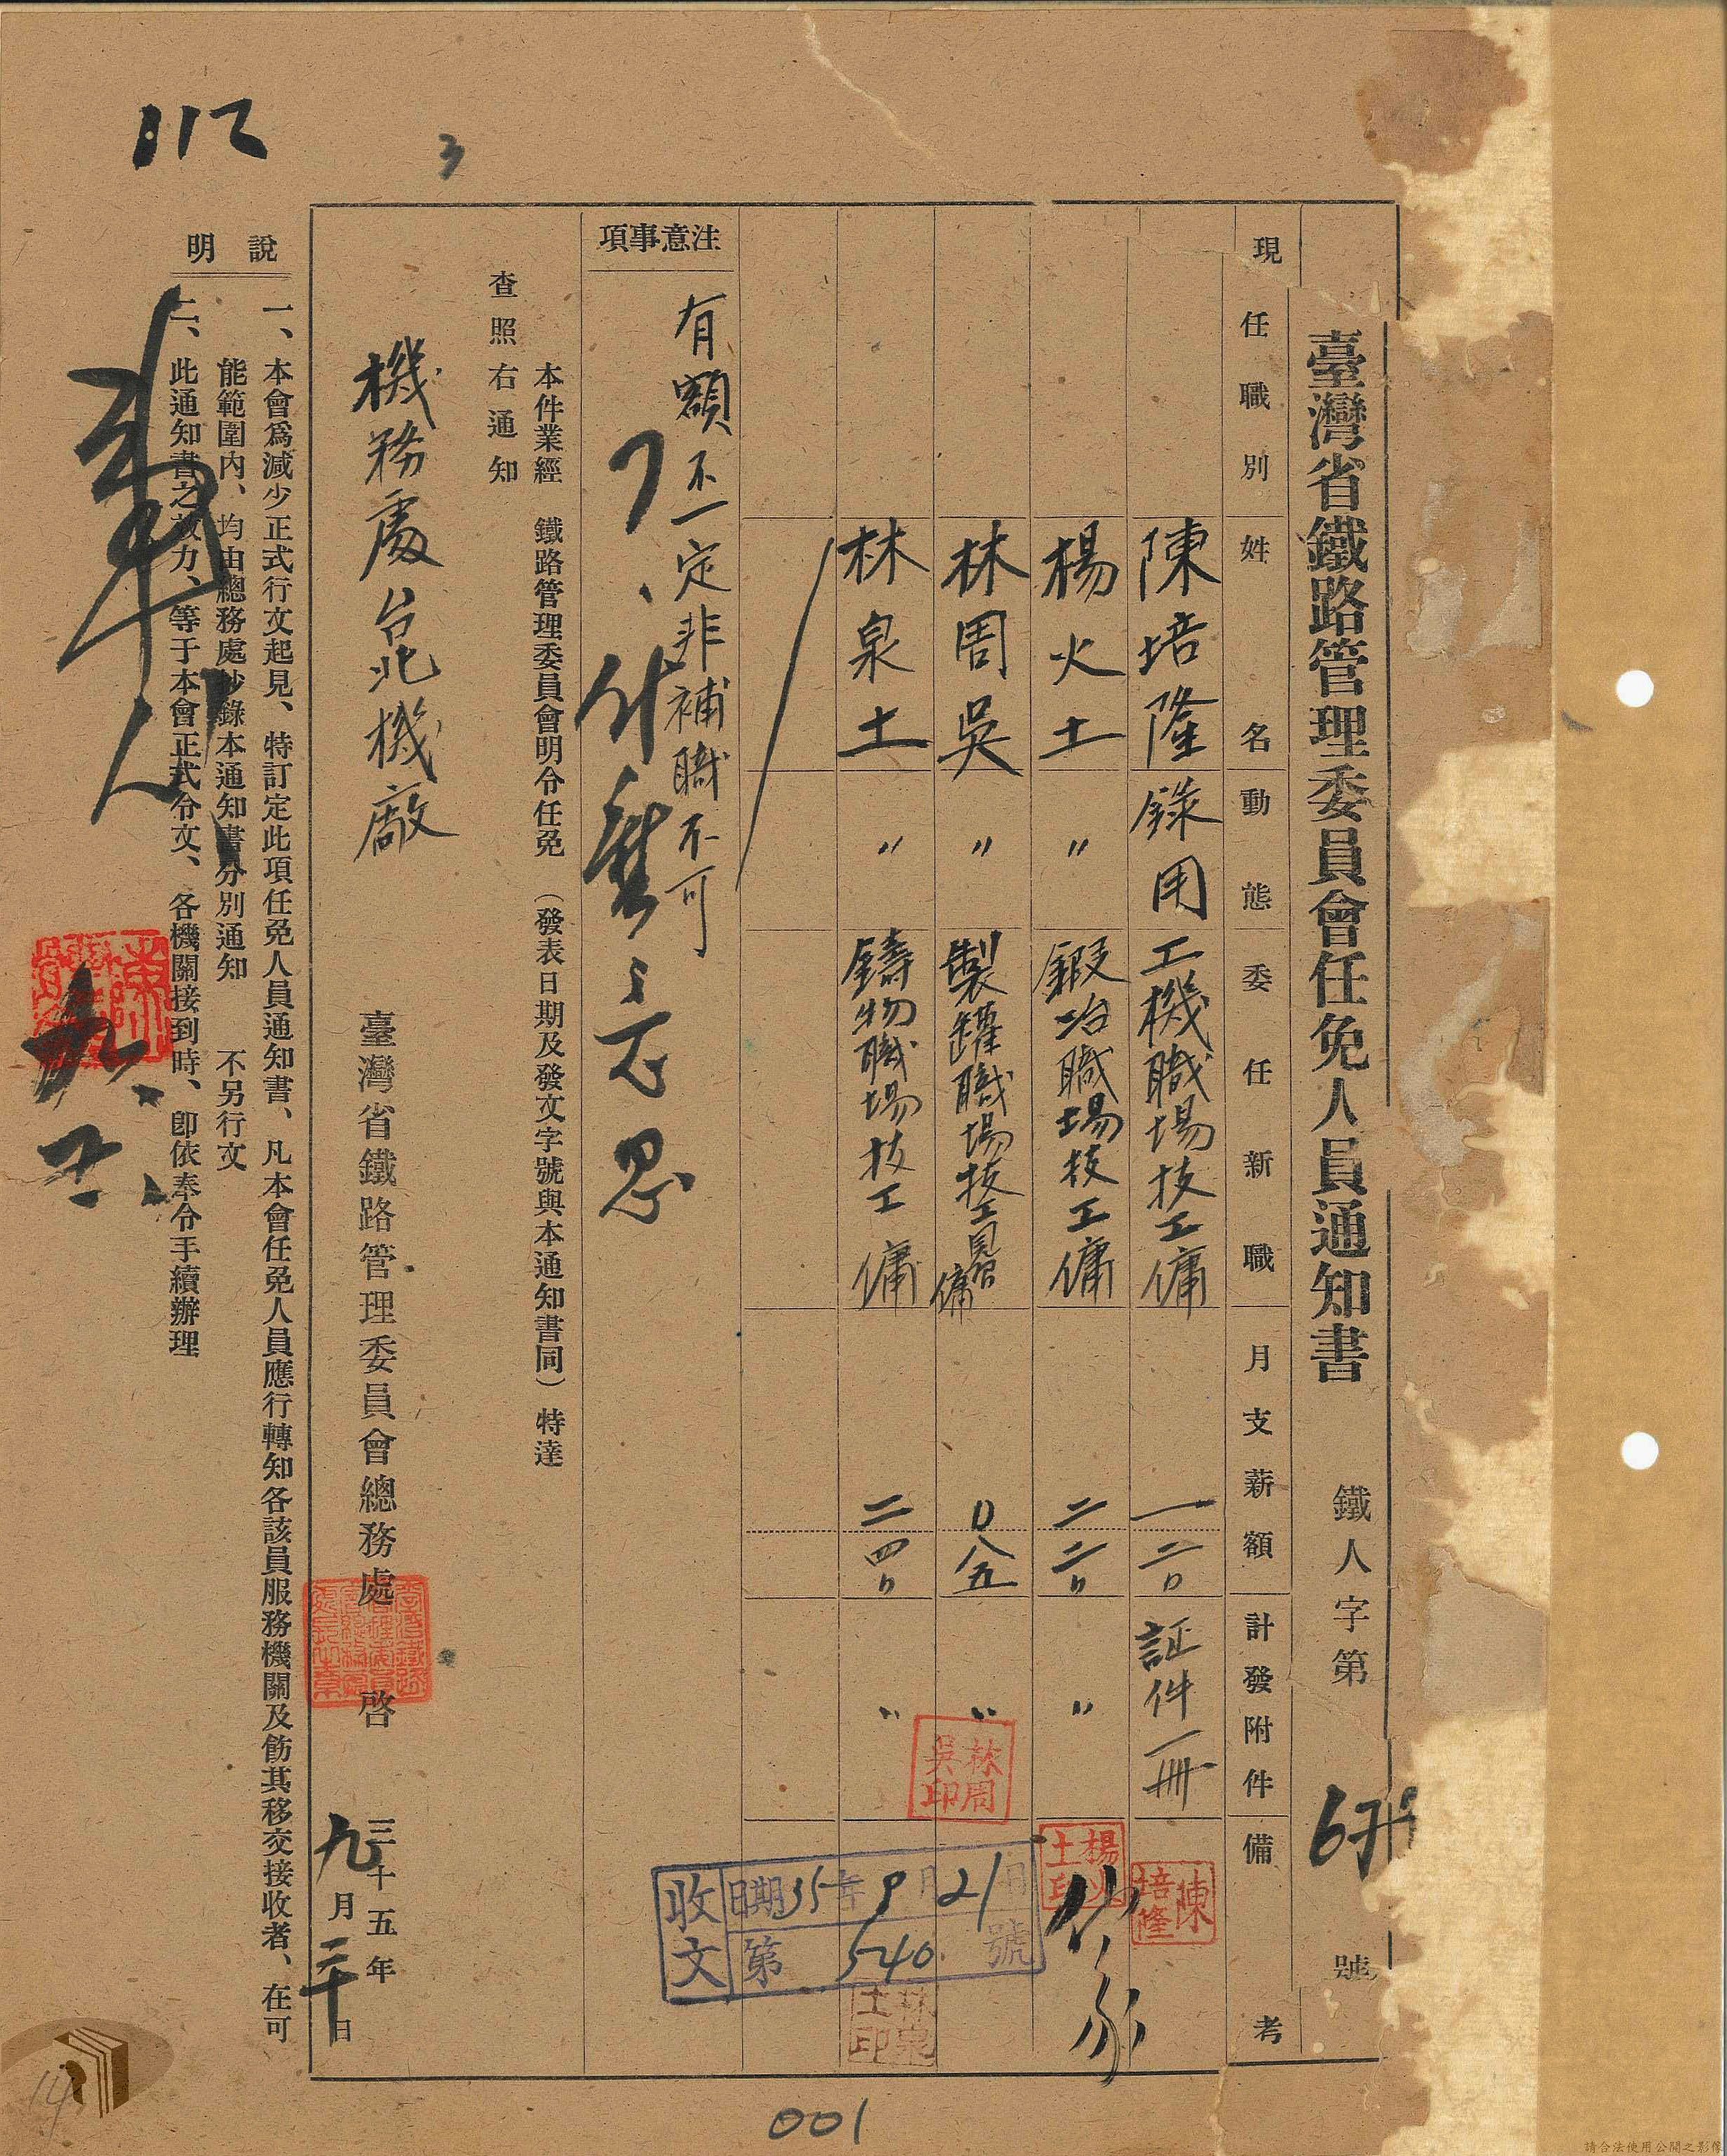 臺灣省鐵路管理委員會任免人員通知書
鐵人字第 號
現任職別 姓名 動態 委任新職 月支薪額 計發附件 備考
陳培隆 錄用 工機職場技工傭 一二〇 証件一冊
楊火土 〃 鍛冶職場技工傭 二二〇 〃
林周吳 〃 製罐職場技工見習傭 〇八五 〃
林泉土 〃 鑄物職場技工傭 二四〇 〃
陳培隆
楊火土印
林周吳印
林泉土印
收文 日期35年9月21日
第540號
注意事項
有額不一定非補職不可
本件業經 鐵路管理委員會明令任免(發表日期及發文字號與本通知書同)特達
查照右通知
機務處台北機廠
臺灣省鐵路管理委員會總務處 啓
三十五年九月二十日
說明
一、本會爲減少正式行文起見、特訂定此項任免人員通知書、凡本會任免人員應行轉知各該員服務機關及飭其移交接收者、在可
能範圍內、均由總務處抄錄本通知書分別通知 不另行文
二、此通知書之效力、等于本會正式令文、各機關接到時、卽依奉令手續辦理
112
3
001
14
請合法使用公開之影像